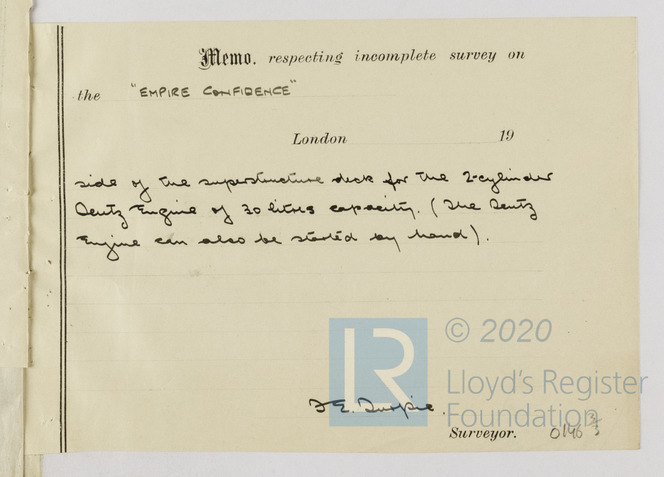 Memo. respecting incomplete survey on
the "EMPIRE CONFIDENCE"
London 19
side of the superstructure deck for the 2-cylinder
Deutz Engine of 30 litres capacity. (The Deutz
Engine can also be started by hand).
LR © 2020
Lloyd's Register
Foundation
Surveyor.